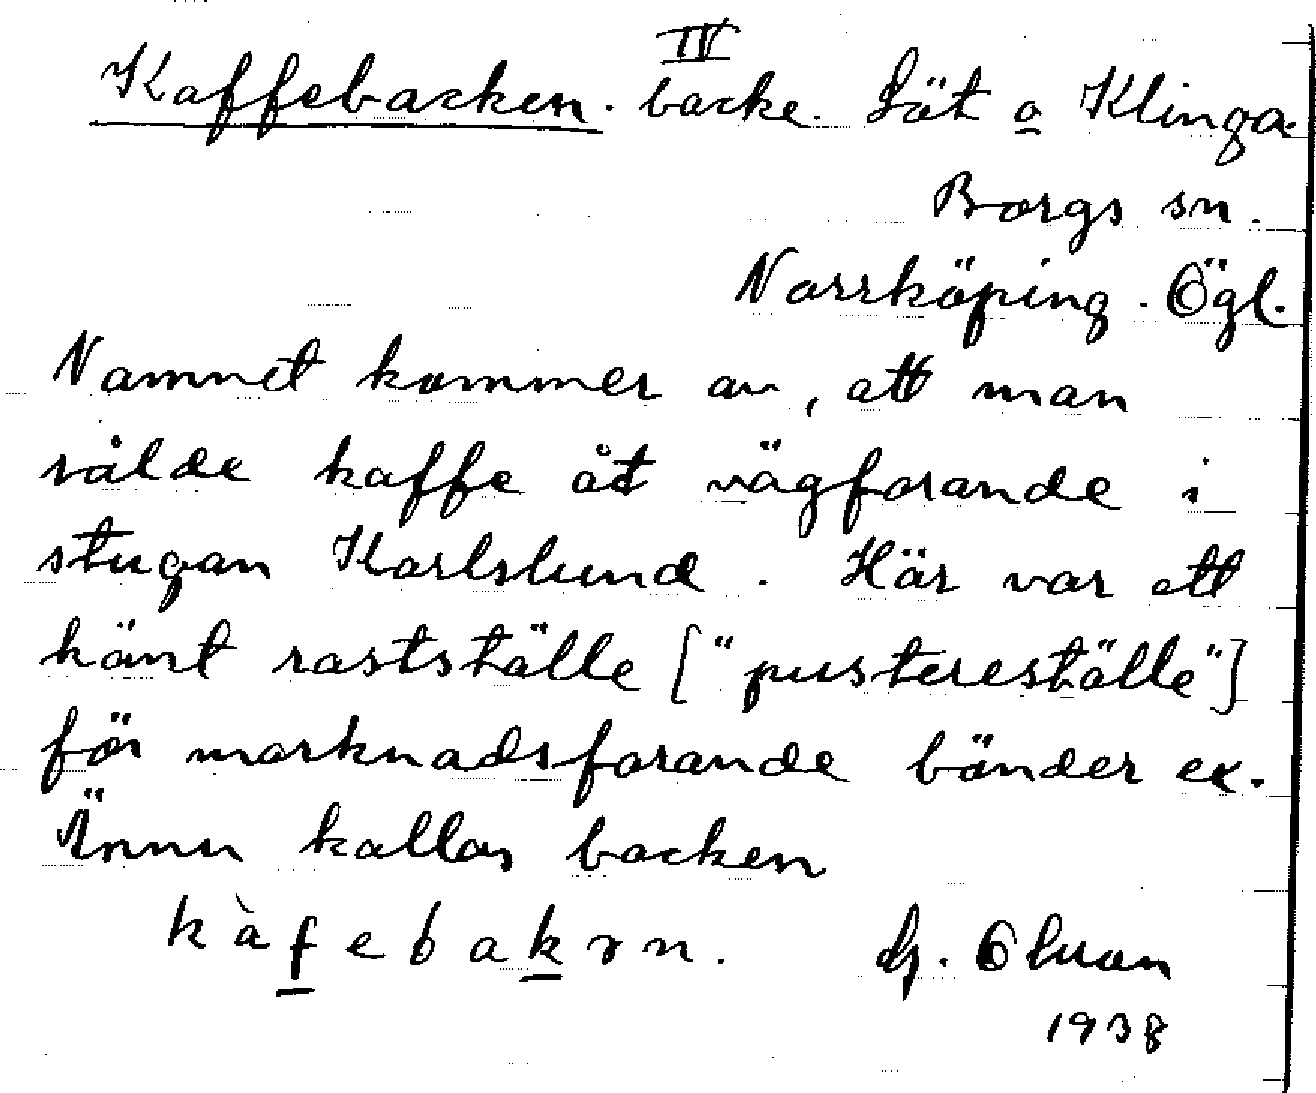 IV
Kaffebacken. backe. Söt o Klinga.
Borgs sn.
Norrköping. Ögl.
Namnet kommer av, att man
sålde kaffe åt vägfarande i
stugan Karlslund. Här var ett
känt rastställe ["pustereställe"]
för marknadsfarande bönder ex.
Ännu kallas backen
kàfebakɤn. G. Olsson
1938